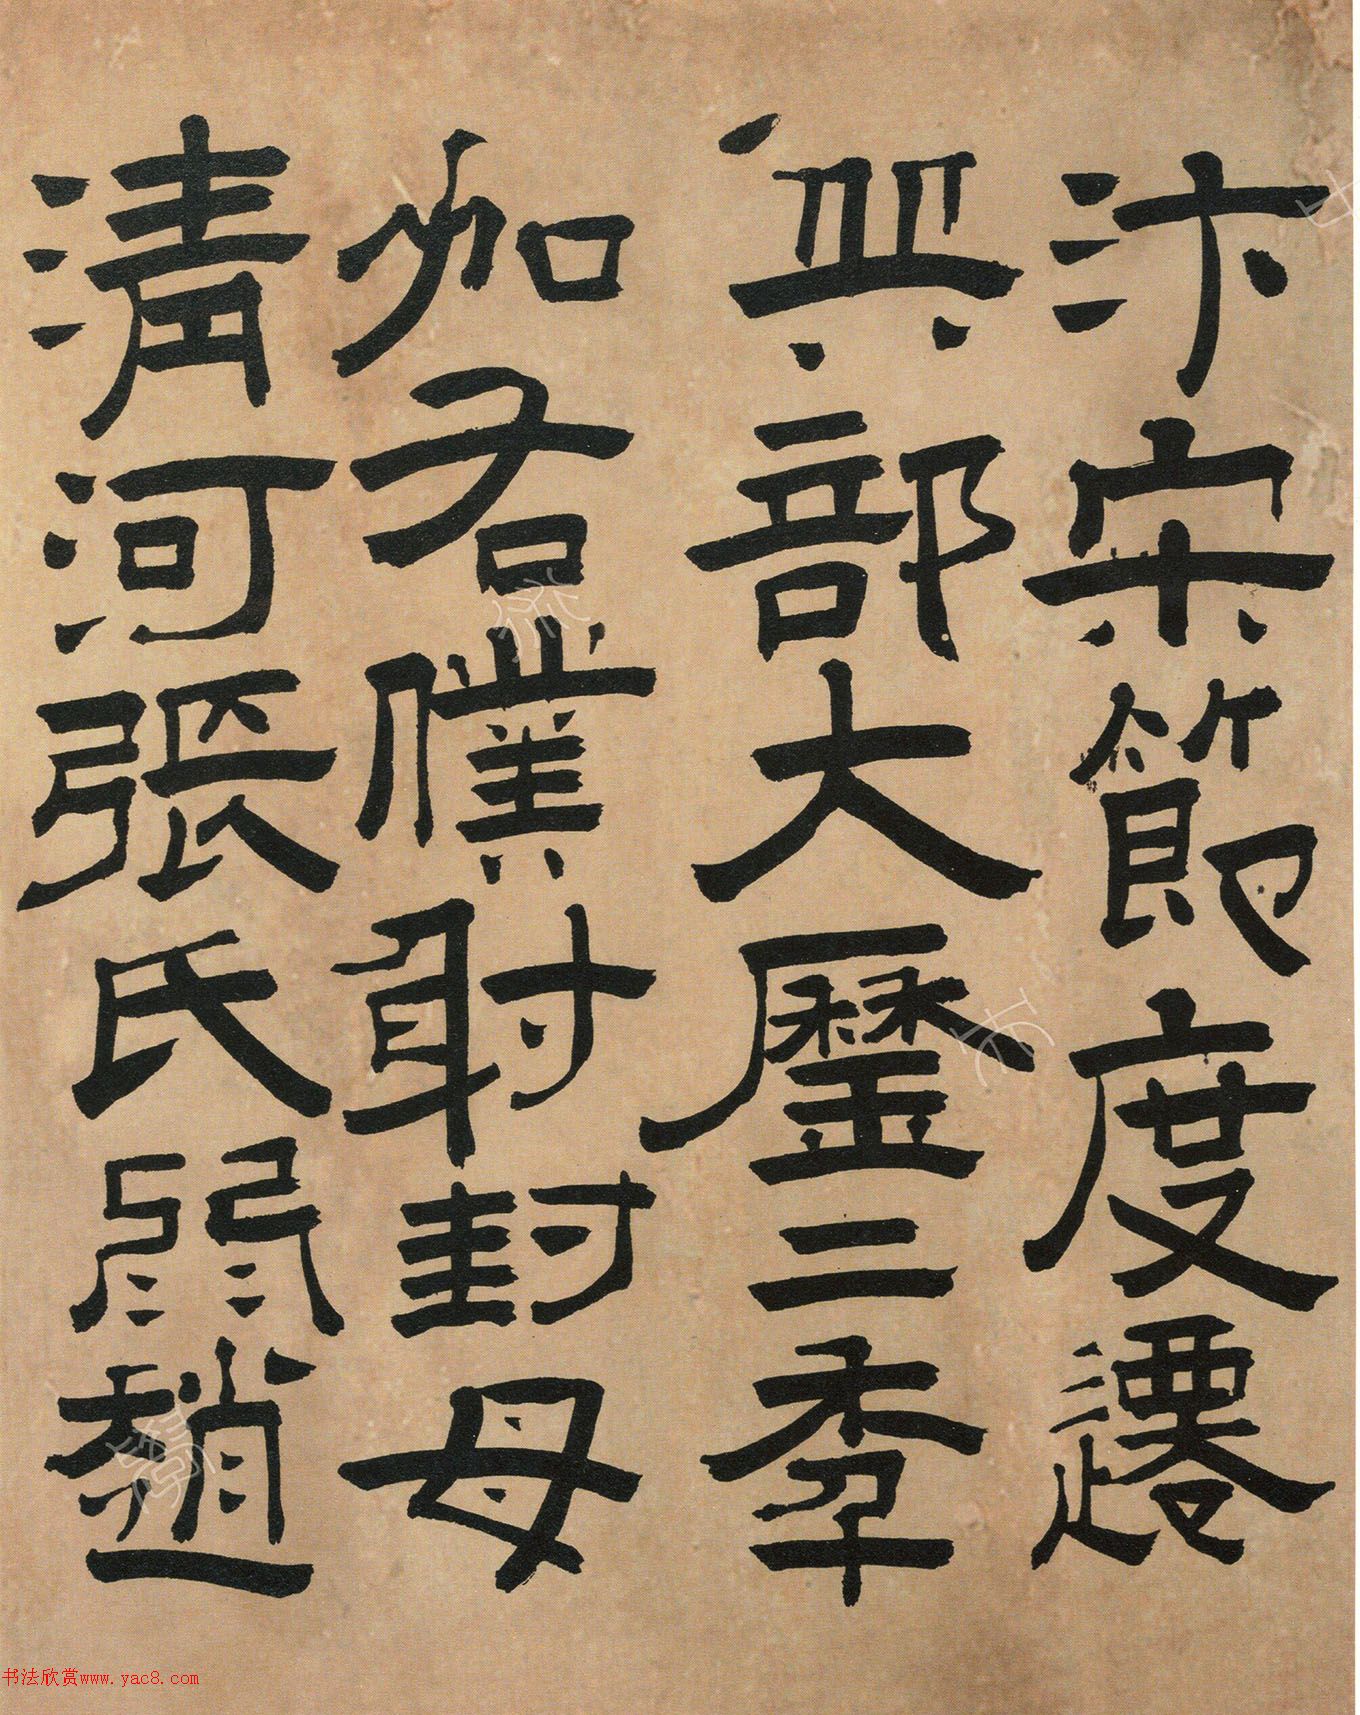 汴宋節度遷
兵部大歷二季
加右僕射封母
清河張氏弱趙
书法欣赏www.yac8.com